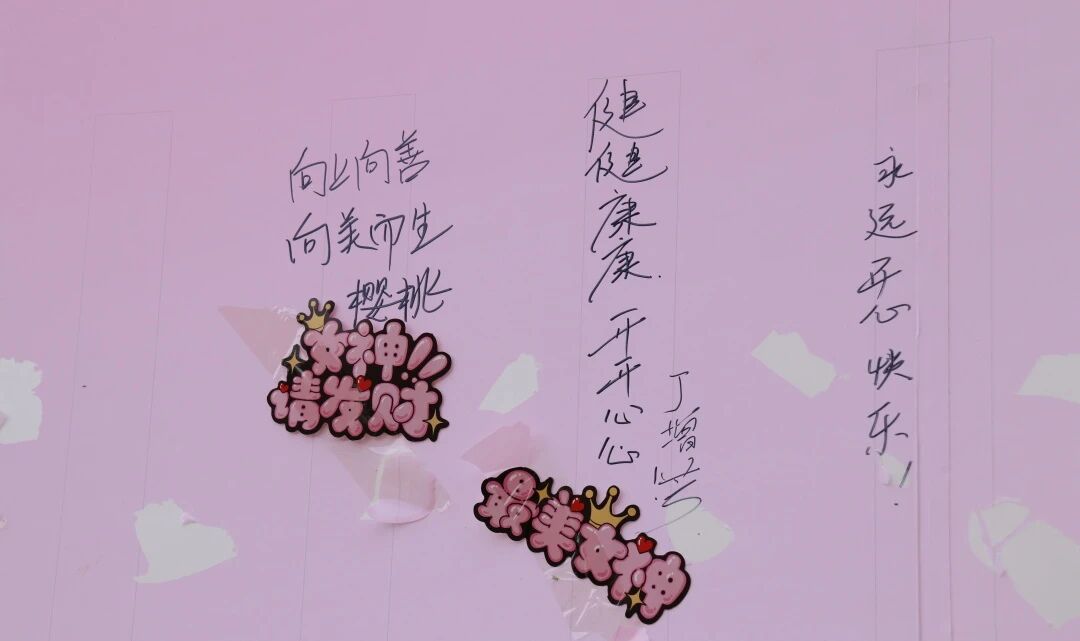 向上向善
向美而生
樱桃
女神!!
请发财
健健康康.开开心心
丁增
最美女神
永远开心快乐!